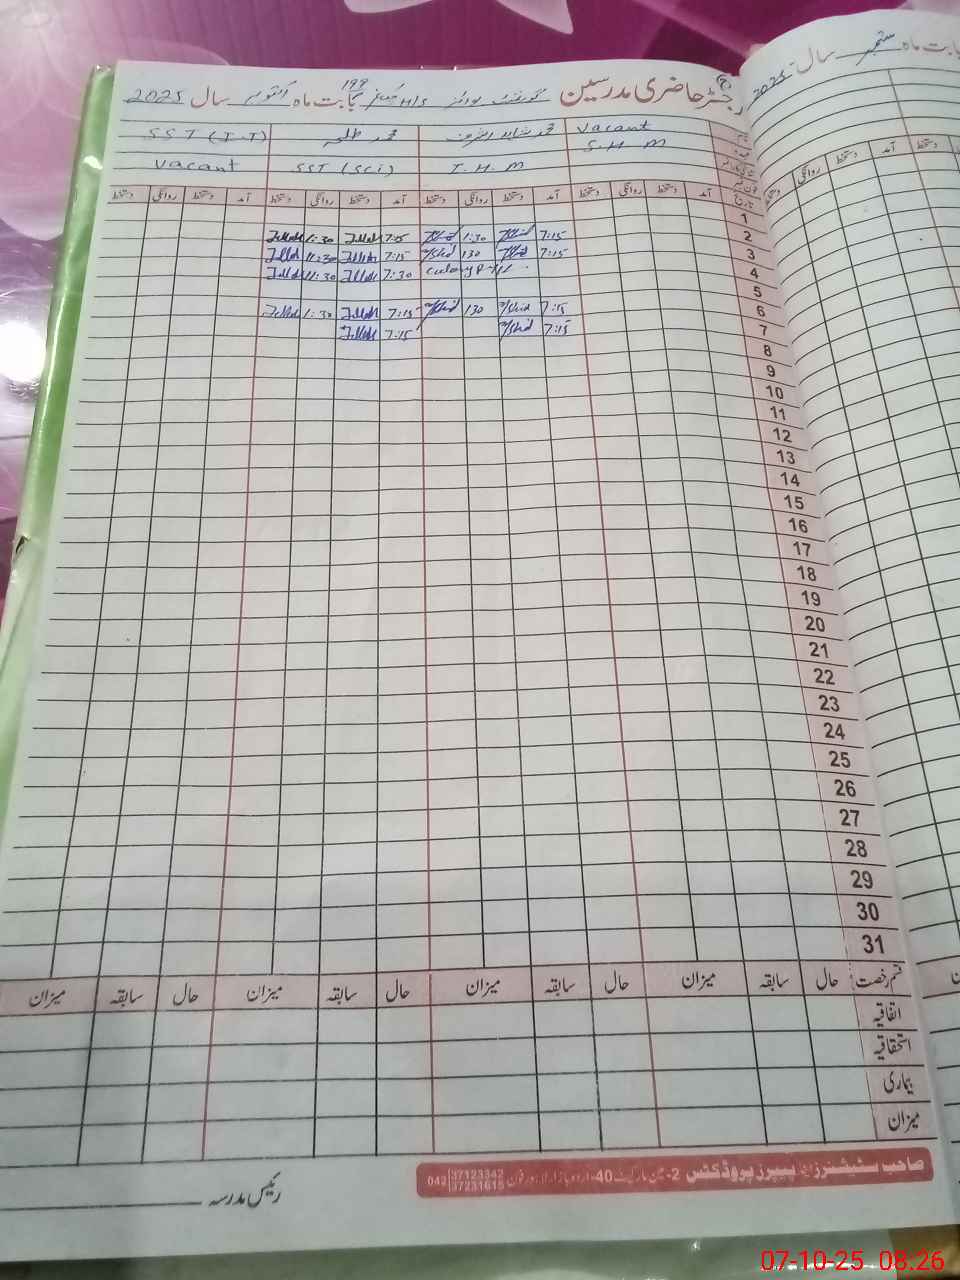 رجسٹر حاضری مدرسین گورنمنٹ بوائز H/S بابت ماہ اکتوبر سال 2025
199
بت ماہ ستمبر سال 2025
Vacant محمد شاہد اشرف محمد طلحہ SST (I.T)
S.H.M I.H.M SST (Sci) Vacant
تاریخ آمد دستخط روانگی دستخط آمد دستخط روانگی دستخط آمد دستخط روانگی دستخط آمد دستخط روانگی دستخط
آمد دستخط روانگی دستخط
1
2 7:15 1:30 7:15 1:30
3 7:15 130 7:15 11:30
4 7:30 11:30
5
6 7:15 130 7:15 1:30
7 7:15 7:15
8
9
10
11
12
13
14
15
16
17
18
19
20
21
22
23
24
25
26
27
28
29
30
31
قسم رخصت حال سابقہ میزان حال سابقہ میزان حال سابقہ میزان حال سابقہ میزان
اتفاقیہ
استحقاقیہ
بیماری
میزان
صاحب سٹیشنرز اینڈ پیپرز پروڈکٹس 2-مین مارکیٹ 40-اردو بازار لاہور فون 042 37123342
37231615
رئیس مدرسہ
07-10-25 08:26